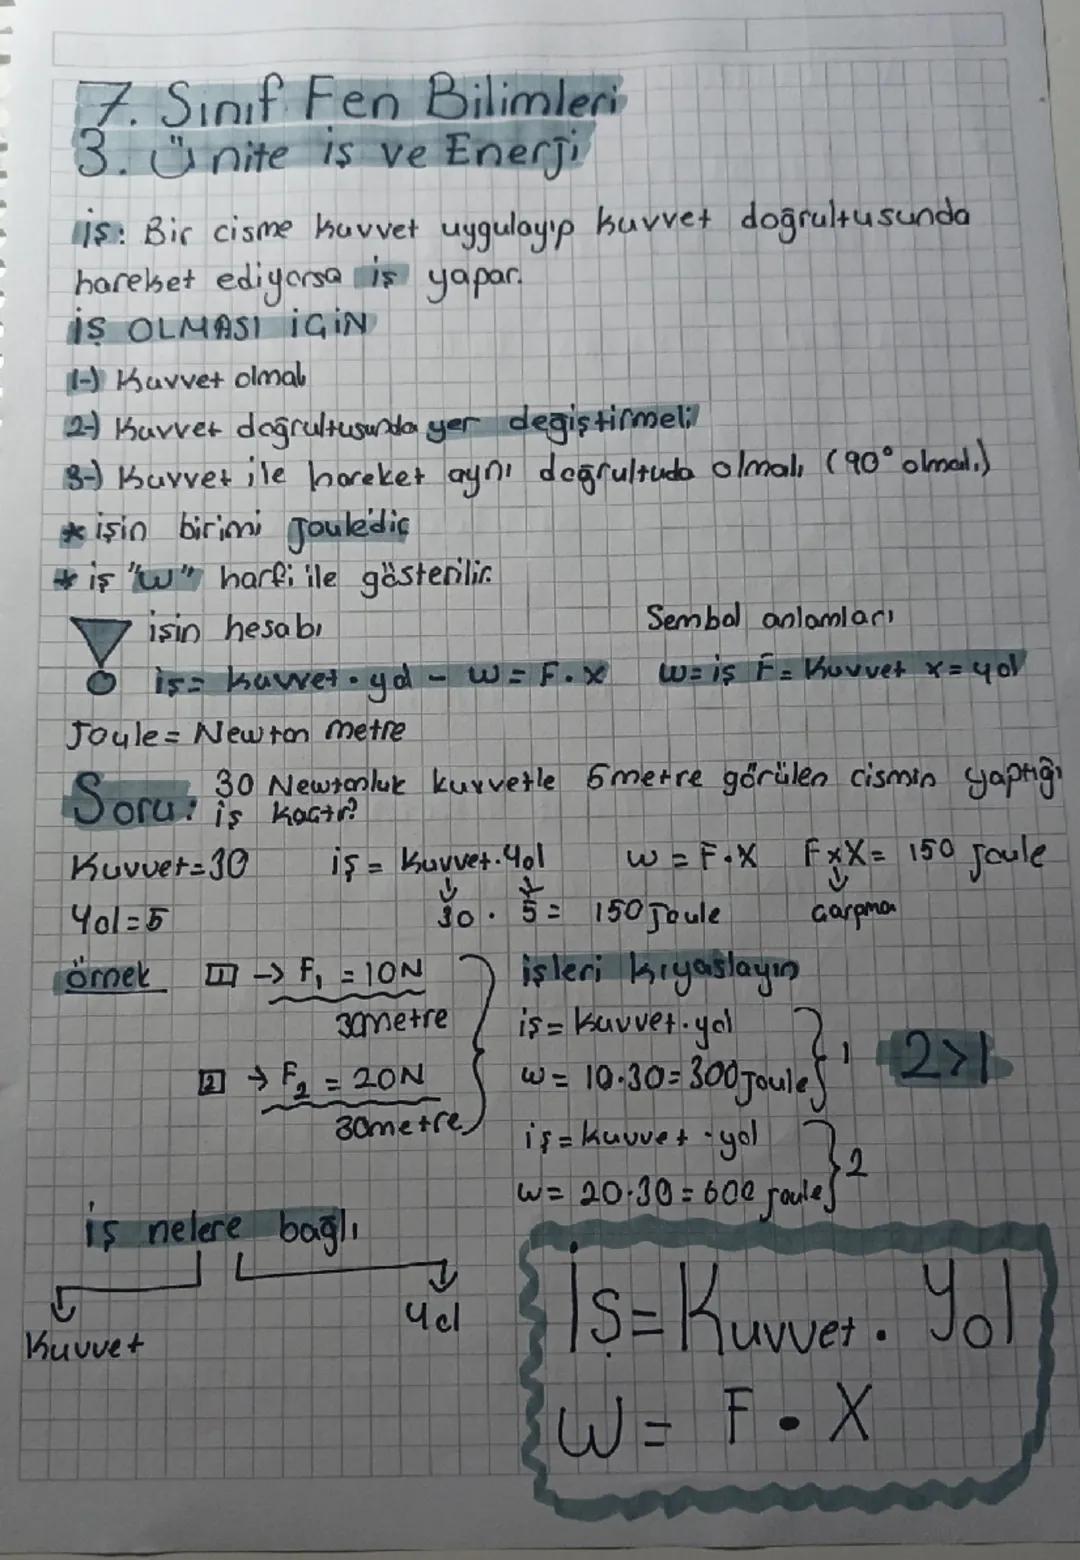 7. Sınıf Fen Bilimleri
3. Ünite iş ve Enerji
iş: Bir cisme kuvvet uygulayıp kuvvet doğrultusunda
hareket ediyorsa iş yapar.
İŞ OLMASI İÇİN
1-) Kuvvet olmalı
2-) Kuvvet doğrultusunda yer değiştirmeli
3-) Kuvvet ile hareket aynı doğrultuda olmalı (90° olmalı)
* işin birimi Joule'dir
* iş "w" harfi ile gösterilir.
işin hesabı Sembol anlamları
iş = kuvvet . yol - W = F . x W = iş F = Kuvvet x = yol
Joule = Newton metre
Soru: 30 Newtonluk kuvvetle 5 metre görülen cismin yaptığı
iş kaçtır?
Kuvvet = 30 iş = Kuvvet . Yol w = F . X FxX = 150 Joule
Yol = 5 30 . 5 = 150 Joule Çarpma
örnek 1 → F₁ = 10N işleri kıyaslayın
30metre iş = Kuvvet . yol
2 → F₂ = 20N w = 10.30 = 300 Joule } 1 2>1
30metre iş = kuvvet . yol
w = 20.30 = 600 joule } 2
iş nelere bağlı
Kuvvet Yol
İş = Kuvvet . Yol
W = F . X